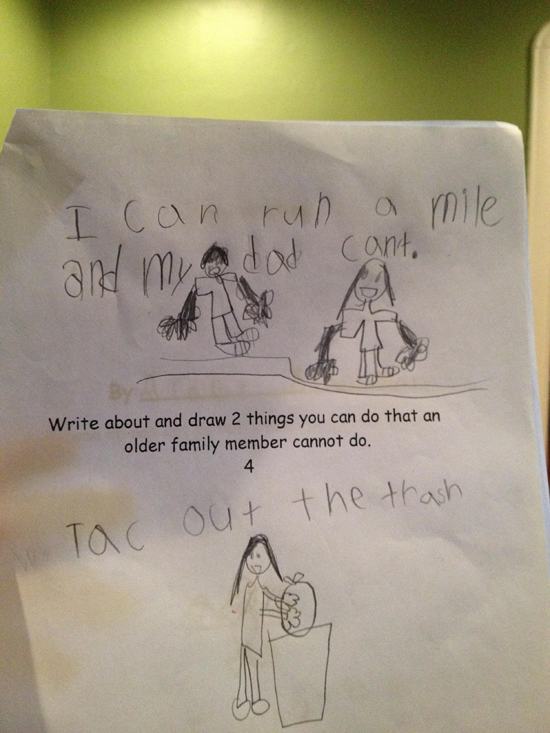 I can run a mile
and my dad cant.
By
Write about and draw 2 things you can do that an
older family member cannot do.
4
Tac out the trash